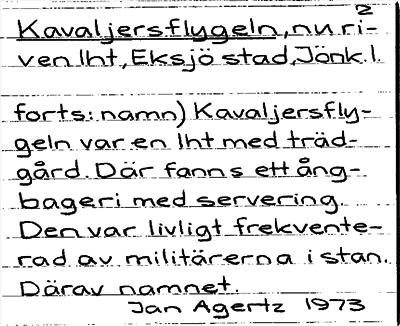 2
Kavaljersflygeln, nu ri-
ven lht, Eksjö stad, Jönk. l.
forts: namn) Kavaljersfly-
geln var en lht med träd-
gård. Där fanns ett ång-
bageri med servering.
Den var livligt frekvente-
rad av militärerna i stan.
Därav namnet.
Jan Agertz 1973